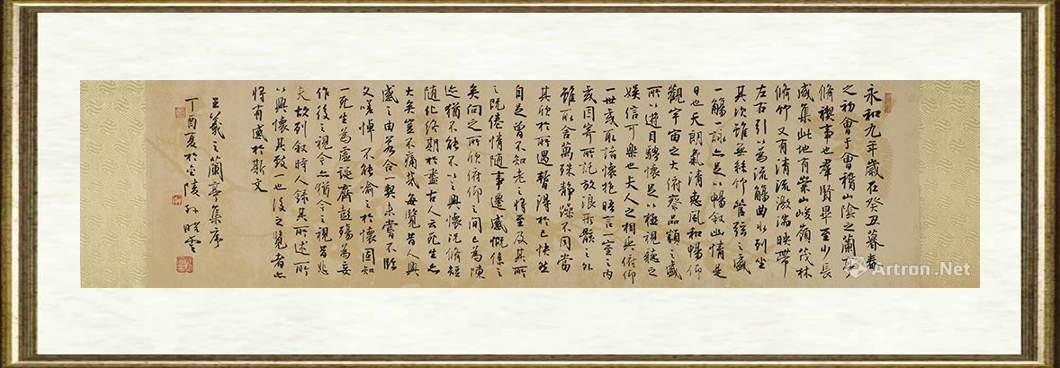 永和九年歲在癸丑暮春
之初會于會稽山陰之蘭亭
脩禊事也羣賢畢至少長
咸集此地有崇山峻嶺茂林
脩竹又有清流激湍映帶
左右引以為流觴曲水列坐
其次雖無絲竹管弦之盛
一觴一詠亦足以暢敘幽情是
日也天朗氣清惠風和暢仰
觀宇宙之大俯察品類之盛
所以遊目騁懷足以極視聽之
娛信可樂也夫人之相與俯仰
一世或取諸懷抱晤言一室之內
或因寄所託放浪形骸之外
雖取舍萬殊靜躁不同當
其欣於所遇暫得於己快然
自足曾不知老之將至及其所
之既倦情隨事遷感慨係之
矣向之所欣俯仰之間已為陳
迹猶不能不以之興懷況脩短
隨化終期於盡古人云死生亦
大矣豈不痛哉每覽昔人興
感之由若合一契未嘗不臨
文嗟悼不能喻之於懷固知
一死生為虛誕齊彭殤為妄
作後之視今亦猶今之視昔悲
夫故列敘時人錄其所述
以興懷其致一也後之覽者亦
將有感於斯文
王羲之蘭亭集序
丁酉夏於金陵孙晓云
Artron.Net